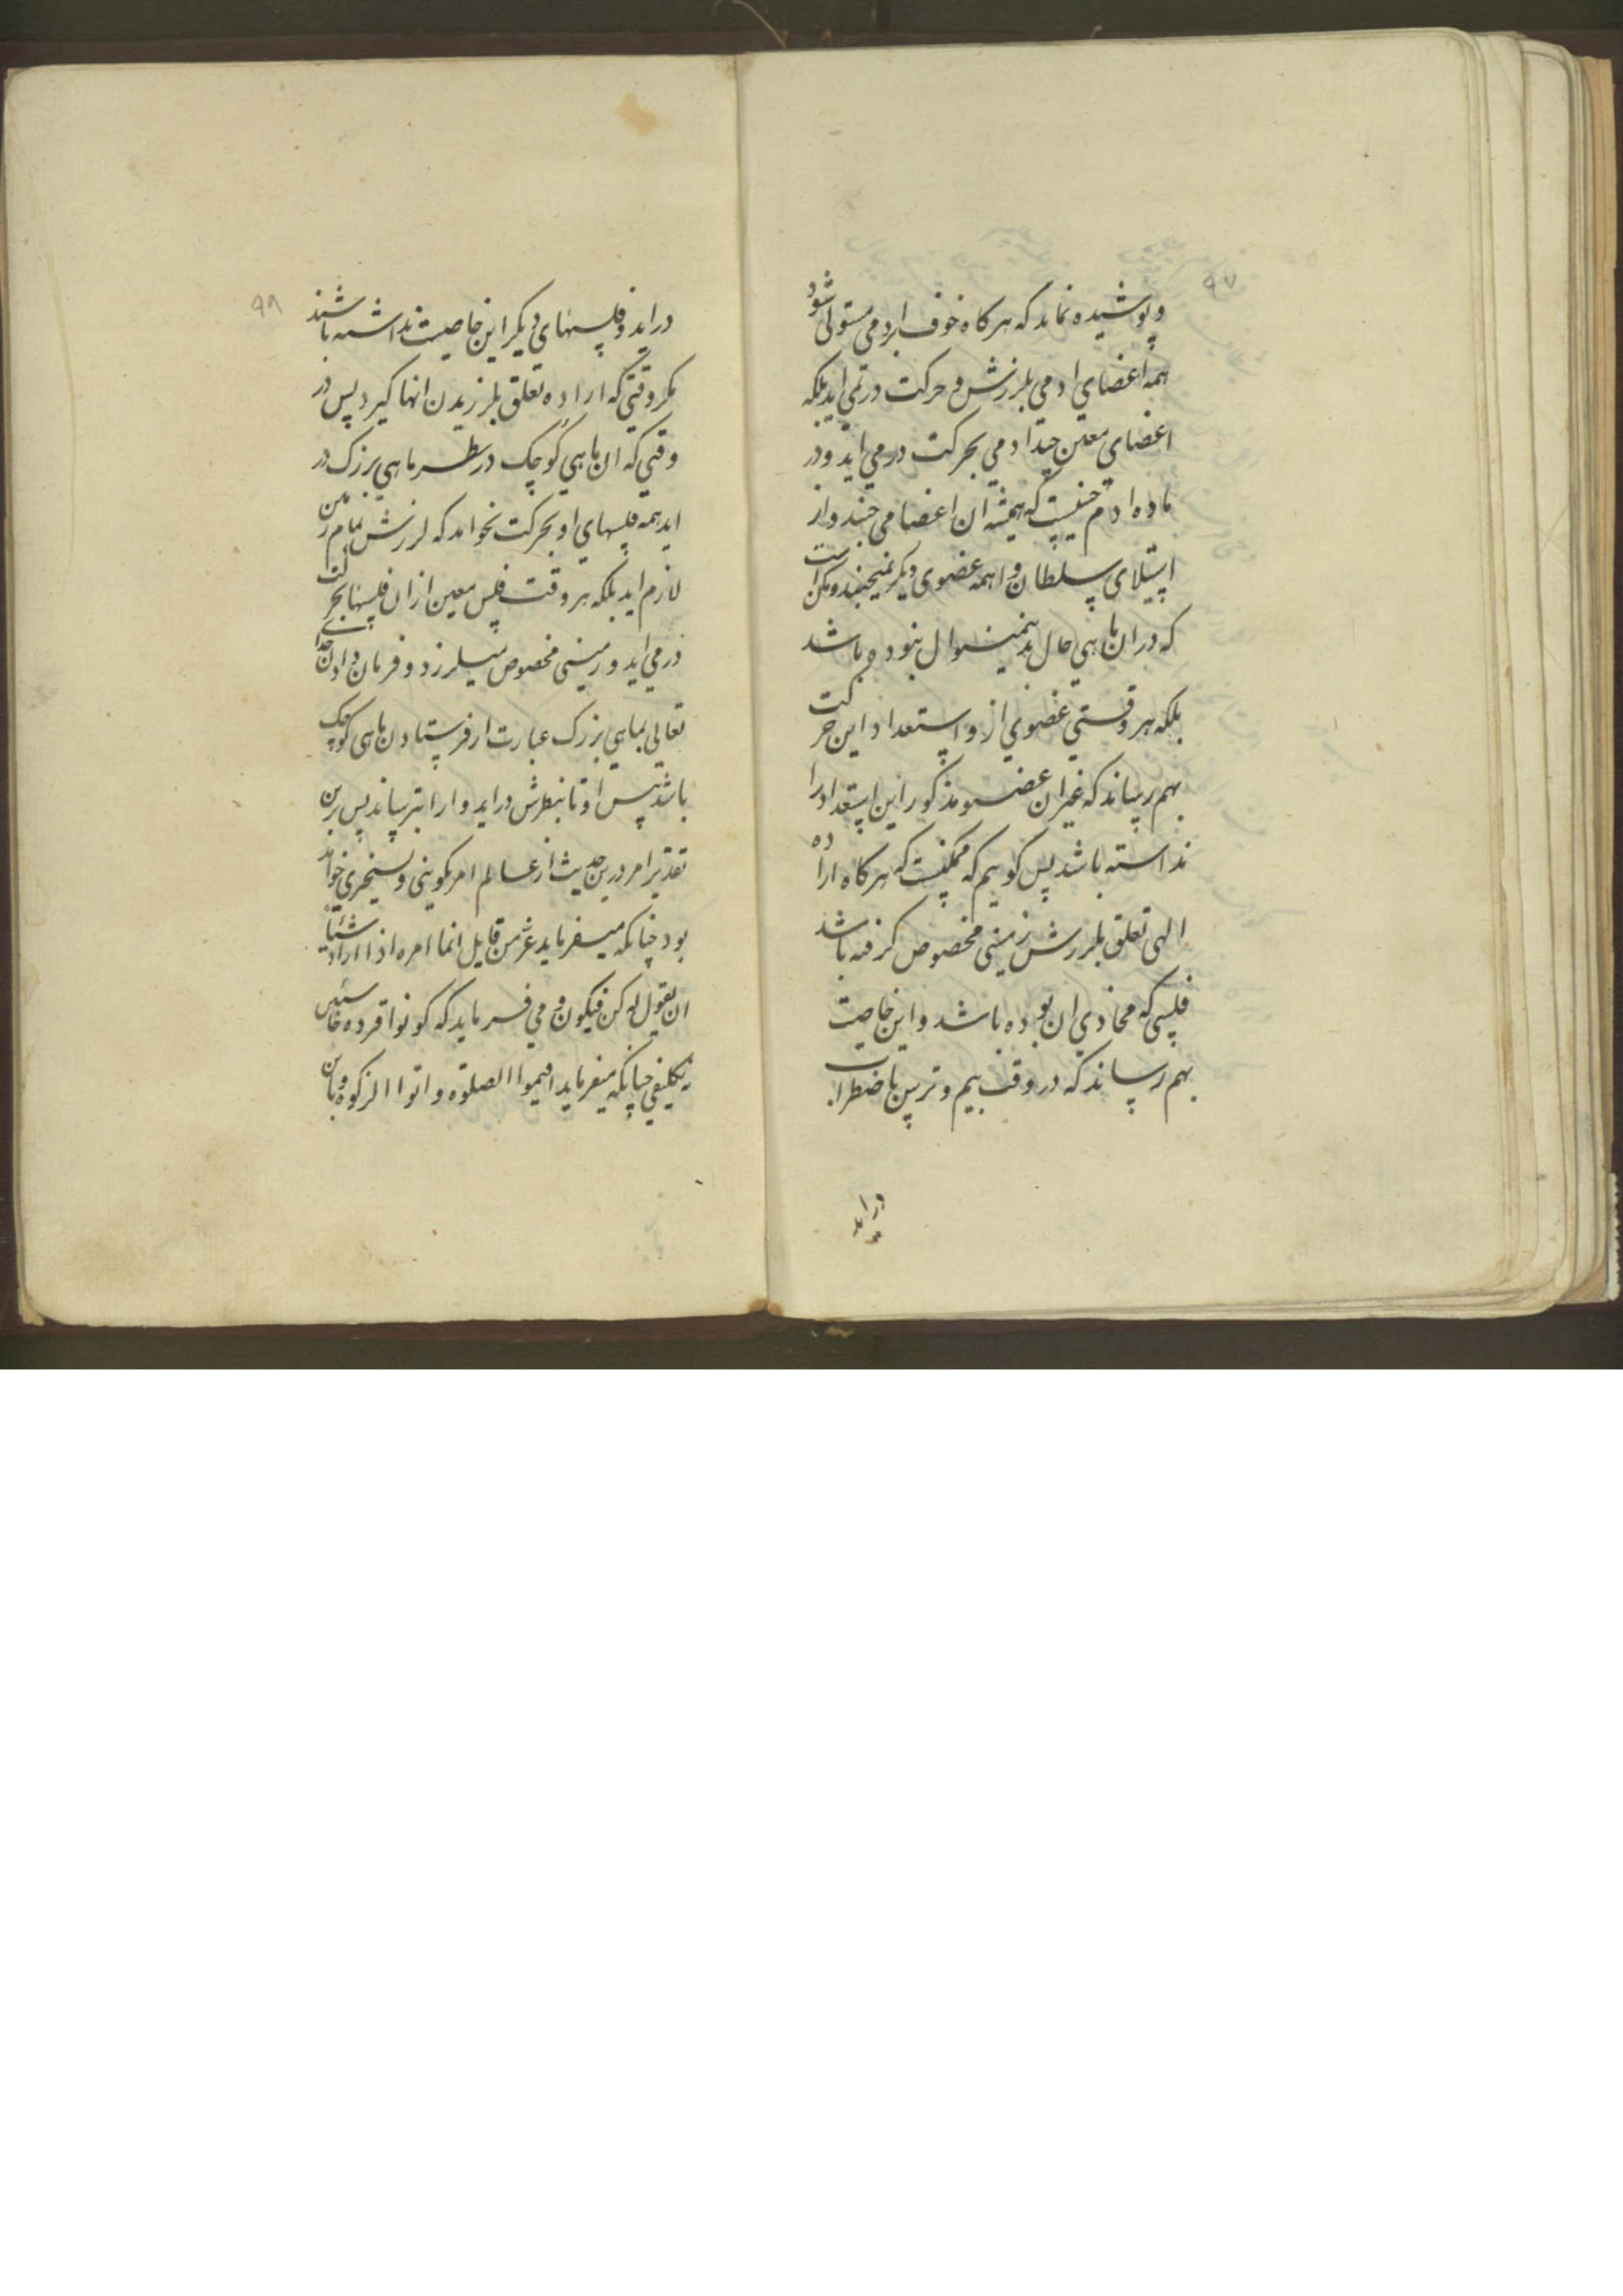 ۹۷
و پوشیده نماند که هر کاه خوف ابردمی مستولی شود
همه اعضای ادمی بلرزش و حرکت در نمی اید بلکه
اعضای معین چند ادمی بحرکت در می اید و در
ماده ادم چنین نیست که همیشه ان اعضا می جنبد و از
استیلای سلطان واهمه عضوی دیکر نمیجنبد و ممکن است
که در ان ماهی حال بدینمنوال نبوده باشد
بلکه هر وقتی عضوی از و استعداد این حرکت
بهم رساند که غیر ان عضو مذکور این استعداد را
نداسته باشد پس کوییم که ممکنست که هر کاه اراده
الهی تعلق بلرزش زمینی مخصوص کرفته باشد
فلسی که محاذی ان بوده باشد و این خاصیت
بهم رساند که در وقت بیم و ترس باضطراب
دراید
۹۸
دراید و فلسهای دیکر این خاصیت نداشته باشند
مکر وقتی که اراده تعلق بلرزیدن انها کیرد پس در
وقتی که ان ماهی کوچک در نظر ماهی بزرک در
اید همه فلسهای او بحرکت نخواهد که لرزش تمام زمین
لازم اید بلکه هر وقت فلس معین از ان فلسها بحرکت
در می اید و زمینی مخصوص میلرزد و فرمان دادن خدای
تعالی بماهی بزرک عبارت از فرستادن ماهی کوچک
باشد پیش او تا بنظرش دراید و او را بترساند پس برین
تقدیر امر درین حدیث از عالم امر تکوینی و تسخیری خواهد
بود چنانکه میفرماید عز من قایل انما امره اذا اراد شئیا
ان یقول له کن فیکون و می فرماید که کونوا قرده خاسئین
نه تکلیفی چنانکه میفرماید اقیموا الصلوة و اتوا الزکوة و باین